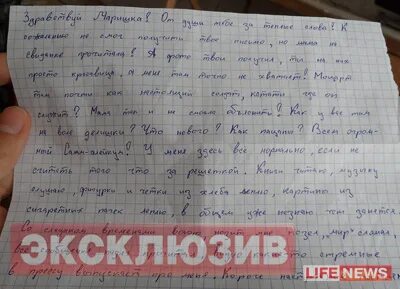 Здравствуй Маришка! От души тебе за теплые слова! К
сожалению не смог получить твое письмо, но мама на
свидание прочитала! А фото твои получил, ты на них
просто красавица. А меня там точно не хватает! Моцарт
там почти как настоящий солдат, кстати где он
служит? Мама так и не смогла объяснить! Как у вас там
на воле делишки? Что нового? Как пацаны? Всем огром-
ной У меня здесь все нормально, если не
считать того что за решеткой. Книги читаю, музыку
слушаю, фигурки и четки из хлеба леплю, картины из
сигаретных пачек леплю, в общем уже не знаю чем заняться.
временами мне мир сломал,
какие-то стремные
в прессу выпускает про меня. Короче
ЭКСКЛЮЗИВ
LIFE NEWS